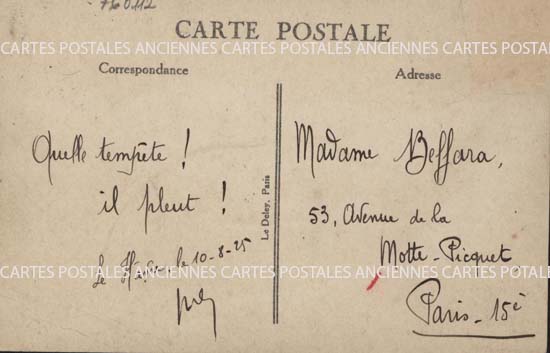 CARTE POSTALE
CARTES POSTALES ANCIENNES CARTES POSTALES ANCIENNES CARTES POSTALES ANCIENNES CARTES POSTALE
Correspondance
Quelle tempête !
il pleut !
le 10-8-25
Le Deley, Paris
Adresse
Madame Beffara,
53, Avenue de la
Motte-Picquet
Paris-15è
CARTES POSTALES ANCIENNES CARTES POSTALES ANCIENNES CARTES POSTALES ANCIENNES CARTES POSTALE